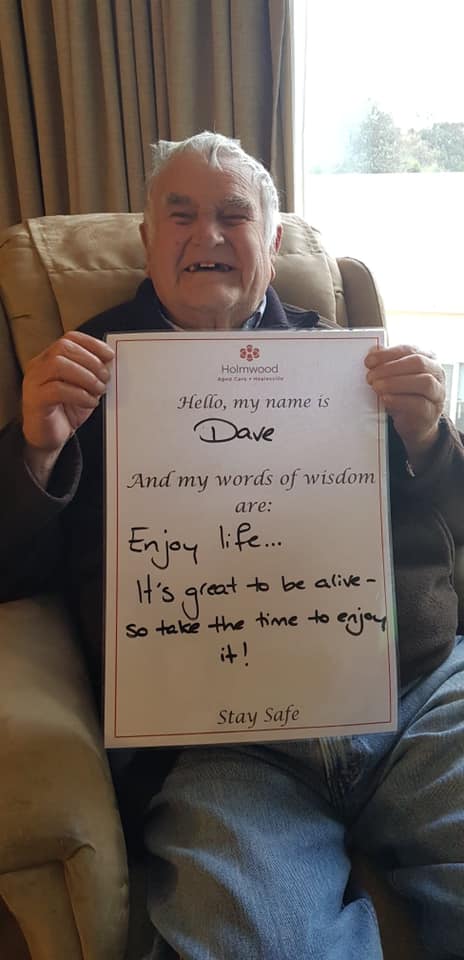 Holmwood
Aged Care • Healesville
Hello, my name is
Dave
And my words of wisdom
are:
Enjoy life...
It's great to be alive-
so take the time to enjoy
it!
Stay Safe